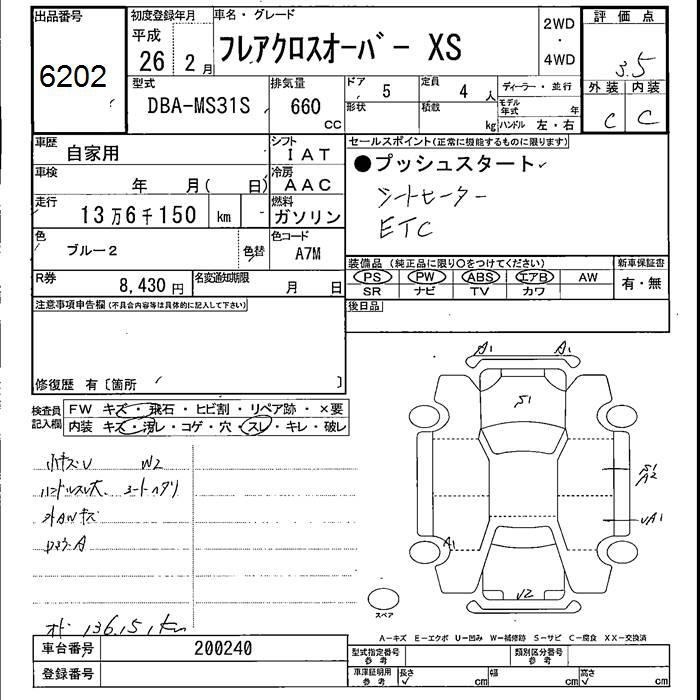 出品番号
6202
初度登録年月
平成
26 2 月
車名・グレード
フレアクロスオーバー XS
2WD
・
4WD
評価点
3.5
外装 内装
C C
型式
DBA-MS31S
排気量
660
cc
ドア
5
形状
定員
4 人
積載
kg
ディーラー・並行
モデル年式
年
ハンドル 左・右
車歴
自家用
シフト
IAT
車検
年 月( 日)
冷房
AAC
走行
13万6千150 km
燃料
ガソリン
色
ブルー2
色替
色コード
A7M
R券
8,430 円
名変通知期限
月 日
セールスポイント(正常に機能するものに限ります)
●プッシュスタート
シートヒーター
ETC
装備品 (純正品に限り〇をつけてください)
PS PW ABS エアB AW
SR ナビ TV カワ
新車保証書
有・無
後日品
注意事項申告欄(不具合内容等は具体的に記入して下さい)
修復歴 有〔箇所 〕
検査員
記入欄
FW キズ・飛石・ヒビ割・リペア跡・×要
内装 キズ・汚レ・コゲ・穴・スレ・キレ・破レ
小キズU W2
ハンドルスレ大
外AWキズ
オド 136,151km
A1 A1
S1
S1
A2
UA1
A1
U2
スペア
A-キズ E-エクボ U-凹み W-補修跡 S-サビ C-腐食 XX-交換済
車台番号
200240
登録番号
型式指定番号
参考
類別区分番号
参考
車庫証明用
参考
長さ
cm
幅
cm
高さ
cm